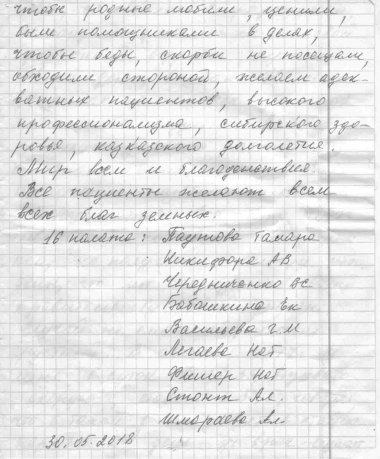 чтобы родные любили, ценили,
были помощниками в делах,
чтобы беды, скорби не посещали,
обходили стороной, желаем адек-
ватных пациентов, высокого
профессионализма, сибирского здо-
ровья, кавказского долголетия.
Мир всем и благоденствия.
Все пациенты желают всем
всех благ земных.
16 палата: Паутова Тамара
Никифора АВ
Чередниченко ВС
Бабашкина Ек
Васильева Г.М
Легаева Нат
Фишер Нат
Стонт Ал.
Шмараева Ал.
30.05.2018